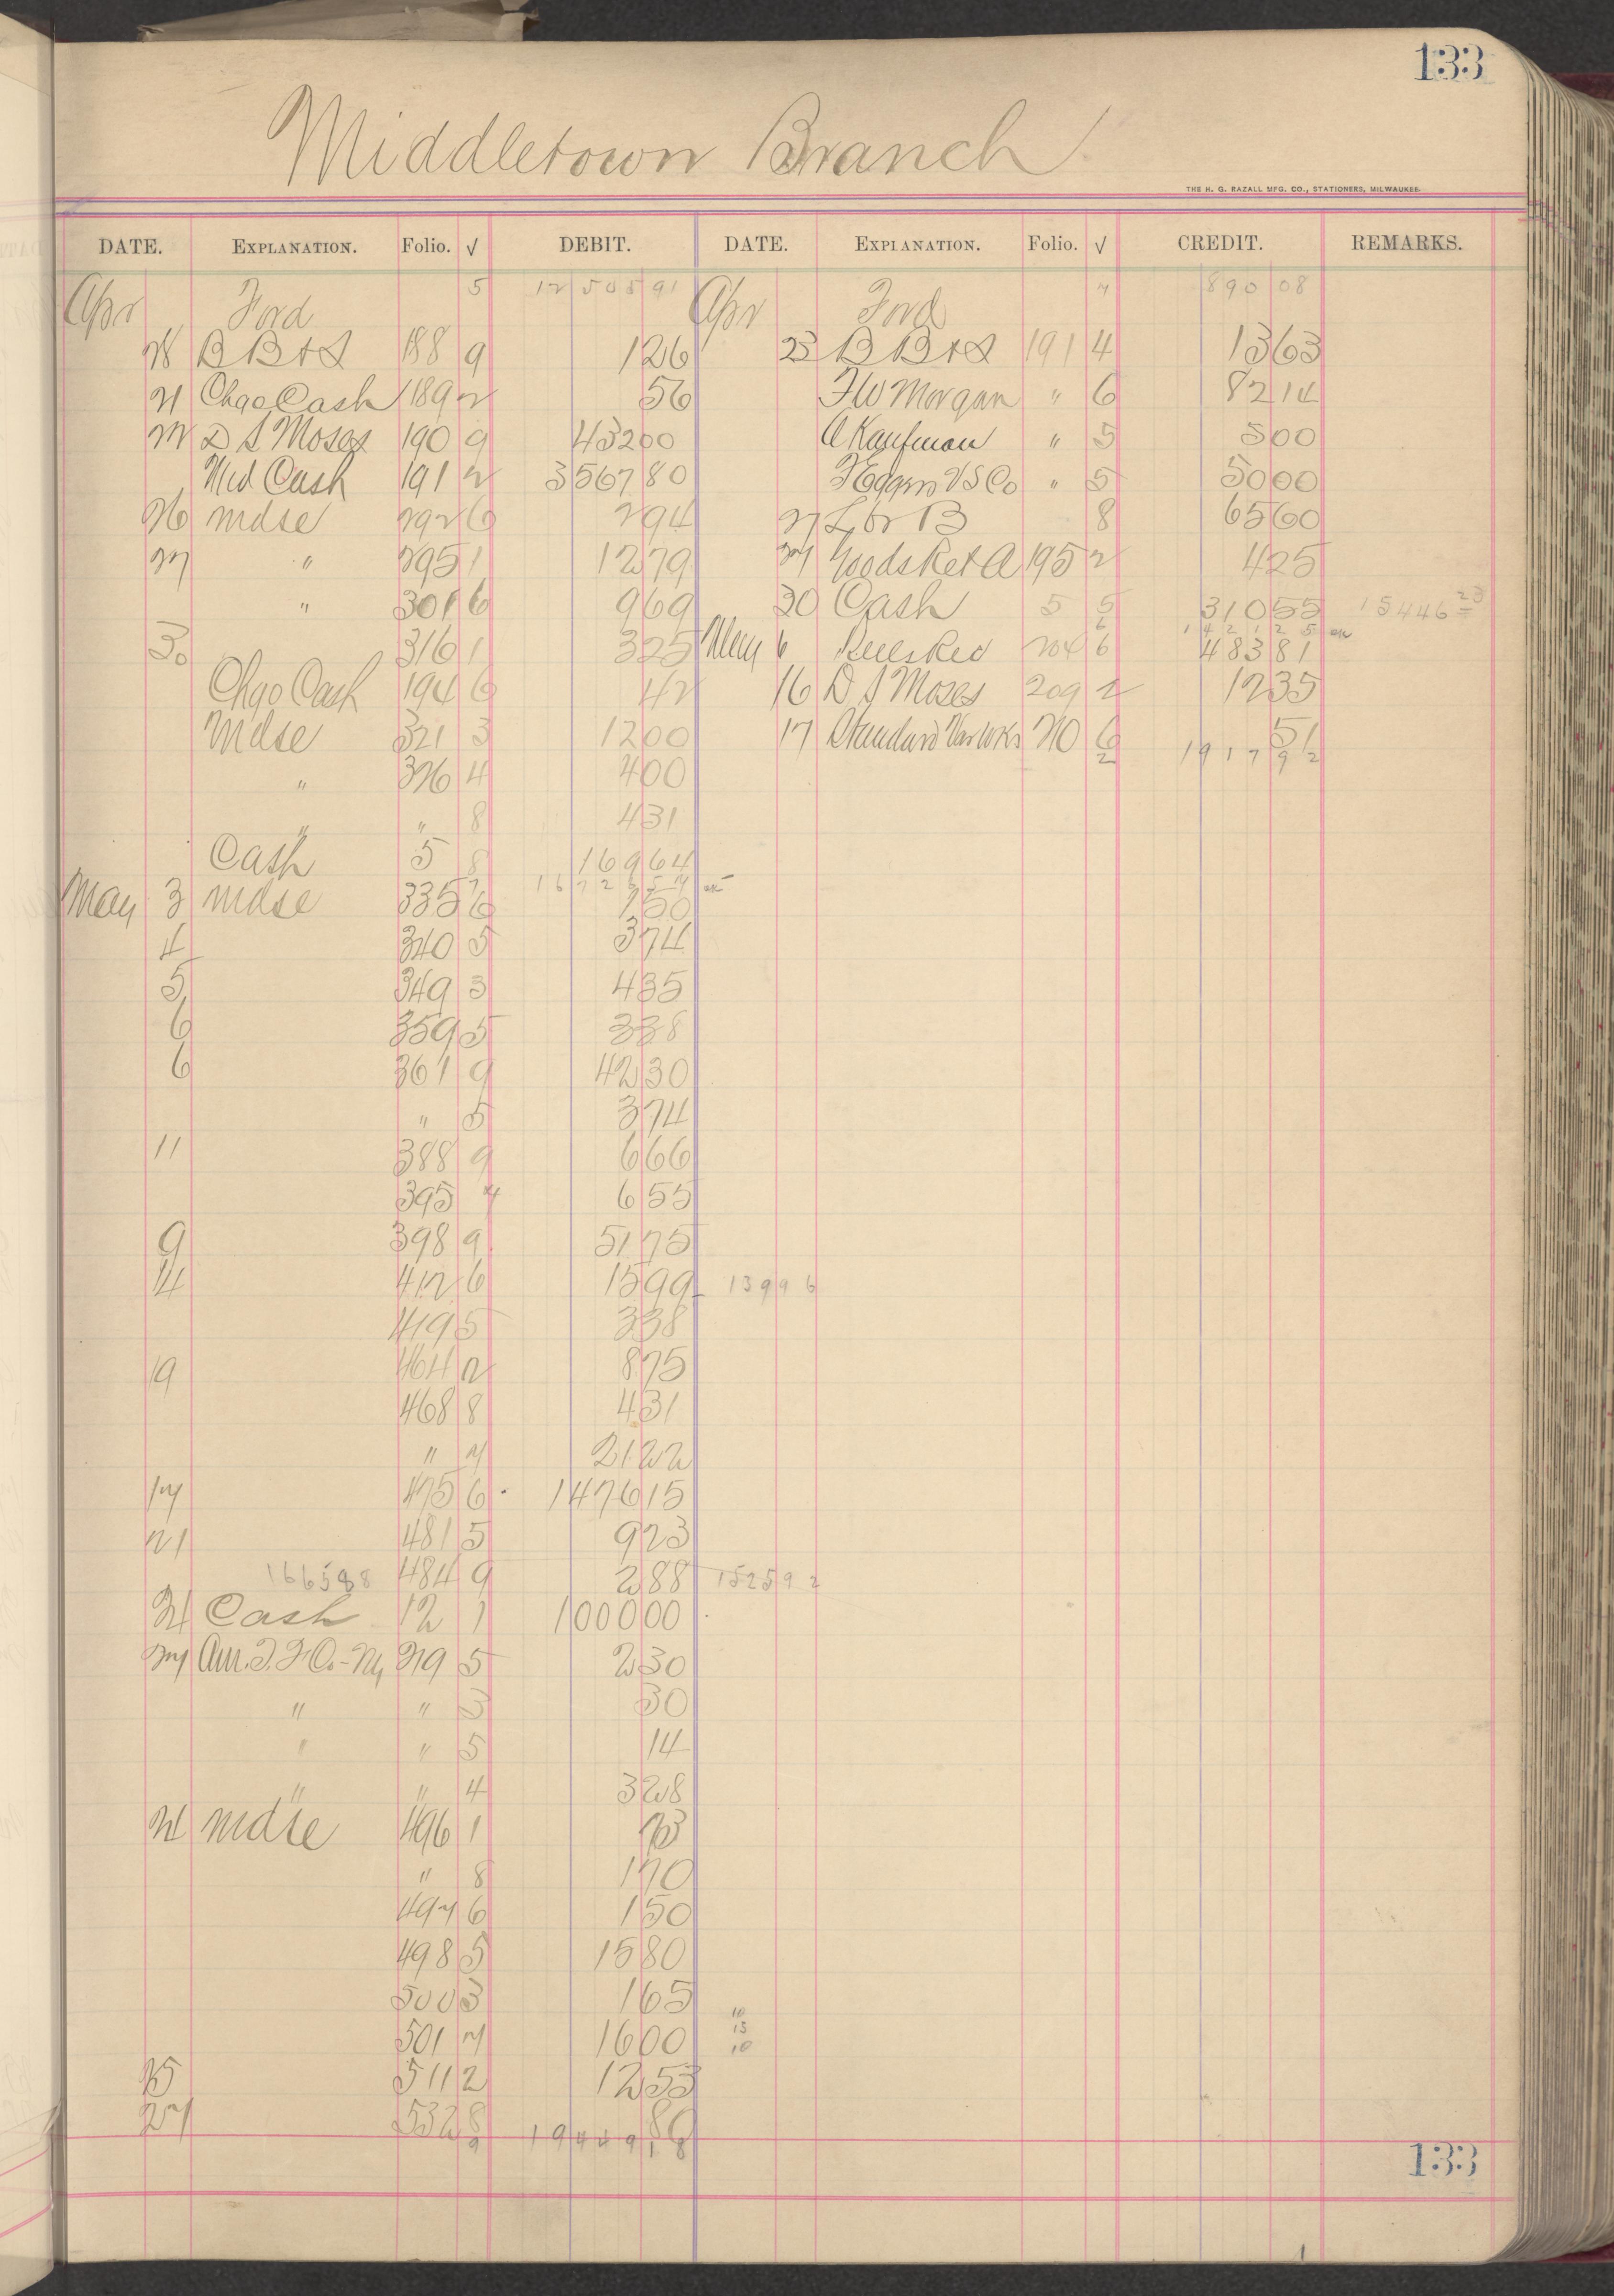 133
Middletown Branch
THE H. G. RAZALL MFG. CO., STATIONERS, MILWAUKEE.
DATE. EXPLANATION. Folio. √ DEBIT. DATE. EXPLANATION. Folio. √ CREDIT. REMARKS.
Apr Ford 5 12 505 91 Apr Ford 7 890 08
28 B B & S 188 9 1 26 23 B B & S 191 4 13 63
21 Chgo Cash 189 2 56 FW Morgan " 6 82 14
22 D S Moses 190 9 432 00 A Kaufman " 5 5 00
Mid Cash 191 2 3567 80 " 5 50 00
26 mdse 292 6 2 94 27 8 65 60
27 " 295 1 12 79 27 195 2 4 25
" 301 6 9 69 30 Cash 5 5 310 55 15446 23
30 316 1 3 25 1421 25
May 6 204 6 483 81
Chgo Cash 194 6 42 16 D S Moses 209 2 12 35
Mdse 321 3 12 00 17 Standard 210 6 51
1917 92
" 326 4 4 00
" " 8 4 31
Cash 5 8 169 64
May 3 mdse 335 6 1 50
4 340 5 3 74
5 349 3 4 35
6 359 5 3 38
6 361 9 42 30
" 5 3 74
11 388 9 6 66
395 7 6 55
9 398 9 51 75
14 412 6 15 99 139 96
419 5 3 38
19 464 2 8 75
468 8 4 31
" 7 21 22
17 475 6 1476 15
21 481 5 9 23
166588 484 9 2 88 1525 92
21 Cash 12 1 1000 00
27 219 5 2 30
" " 3 30
" " 5 14
" " 4 3 28
21 mdse 496 1 73
" 8 1 70
497 6 1 50
498 5 15 80
500 3 1 65
501 7 16 00
10
15
10
25 511 2 12 53
27 532 8 86
9 19449 18
133